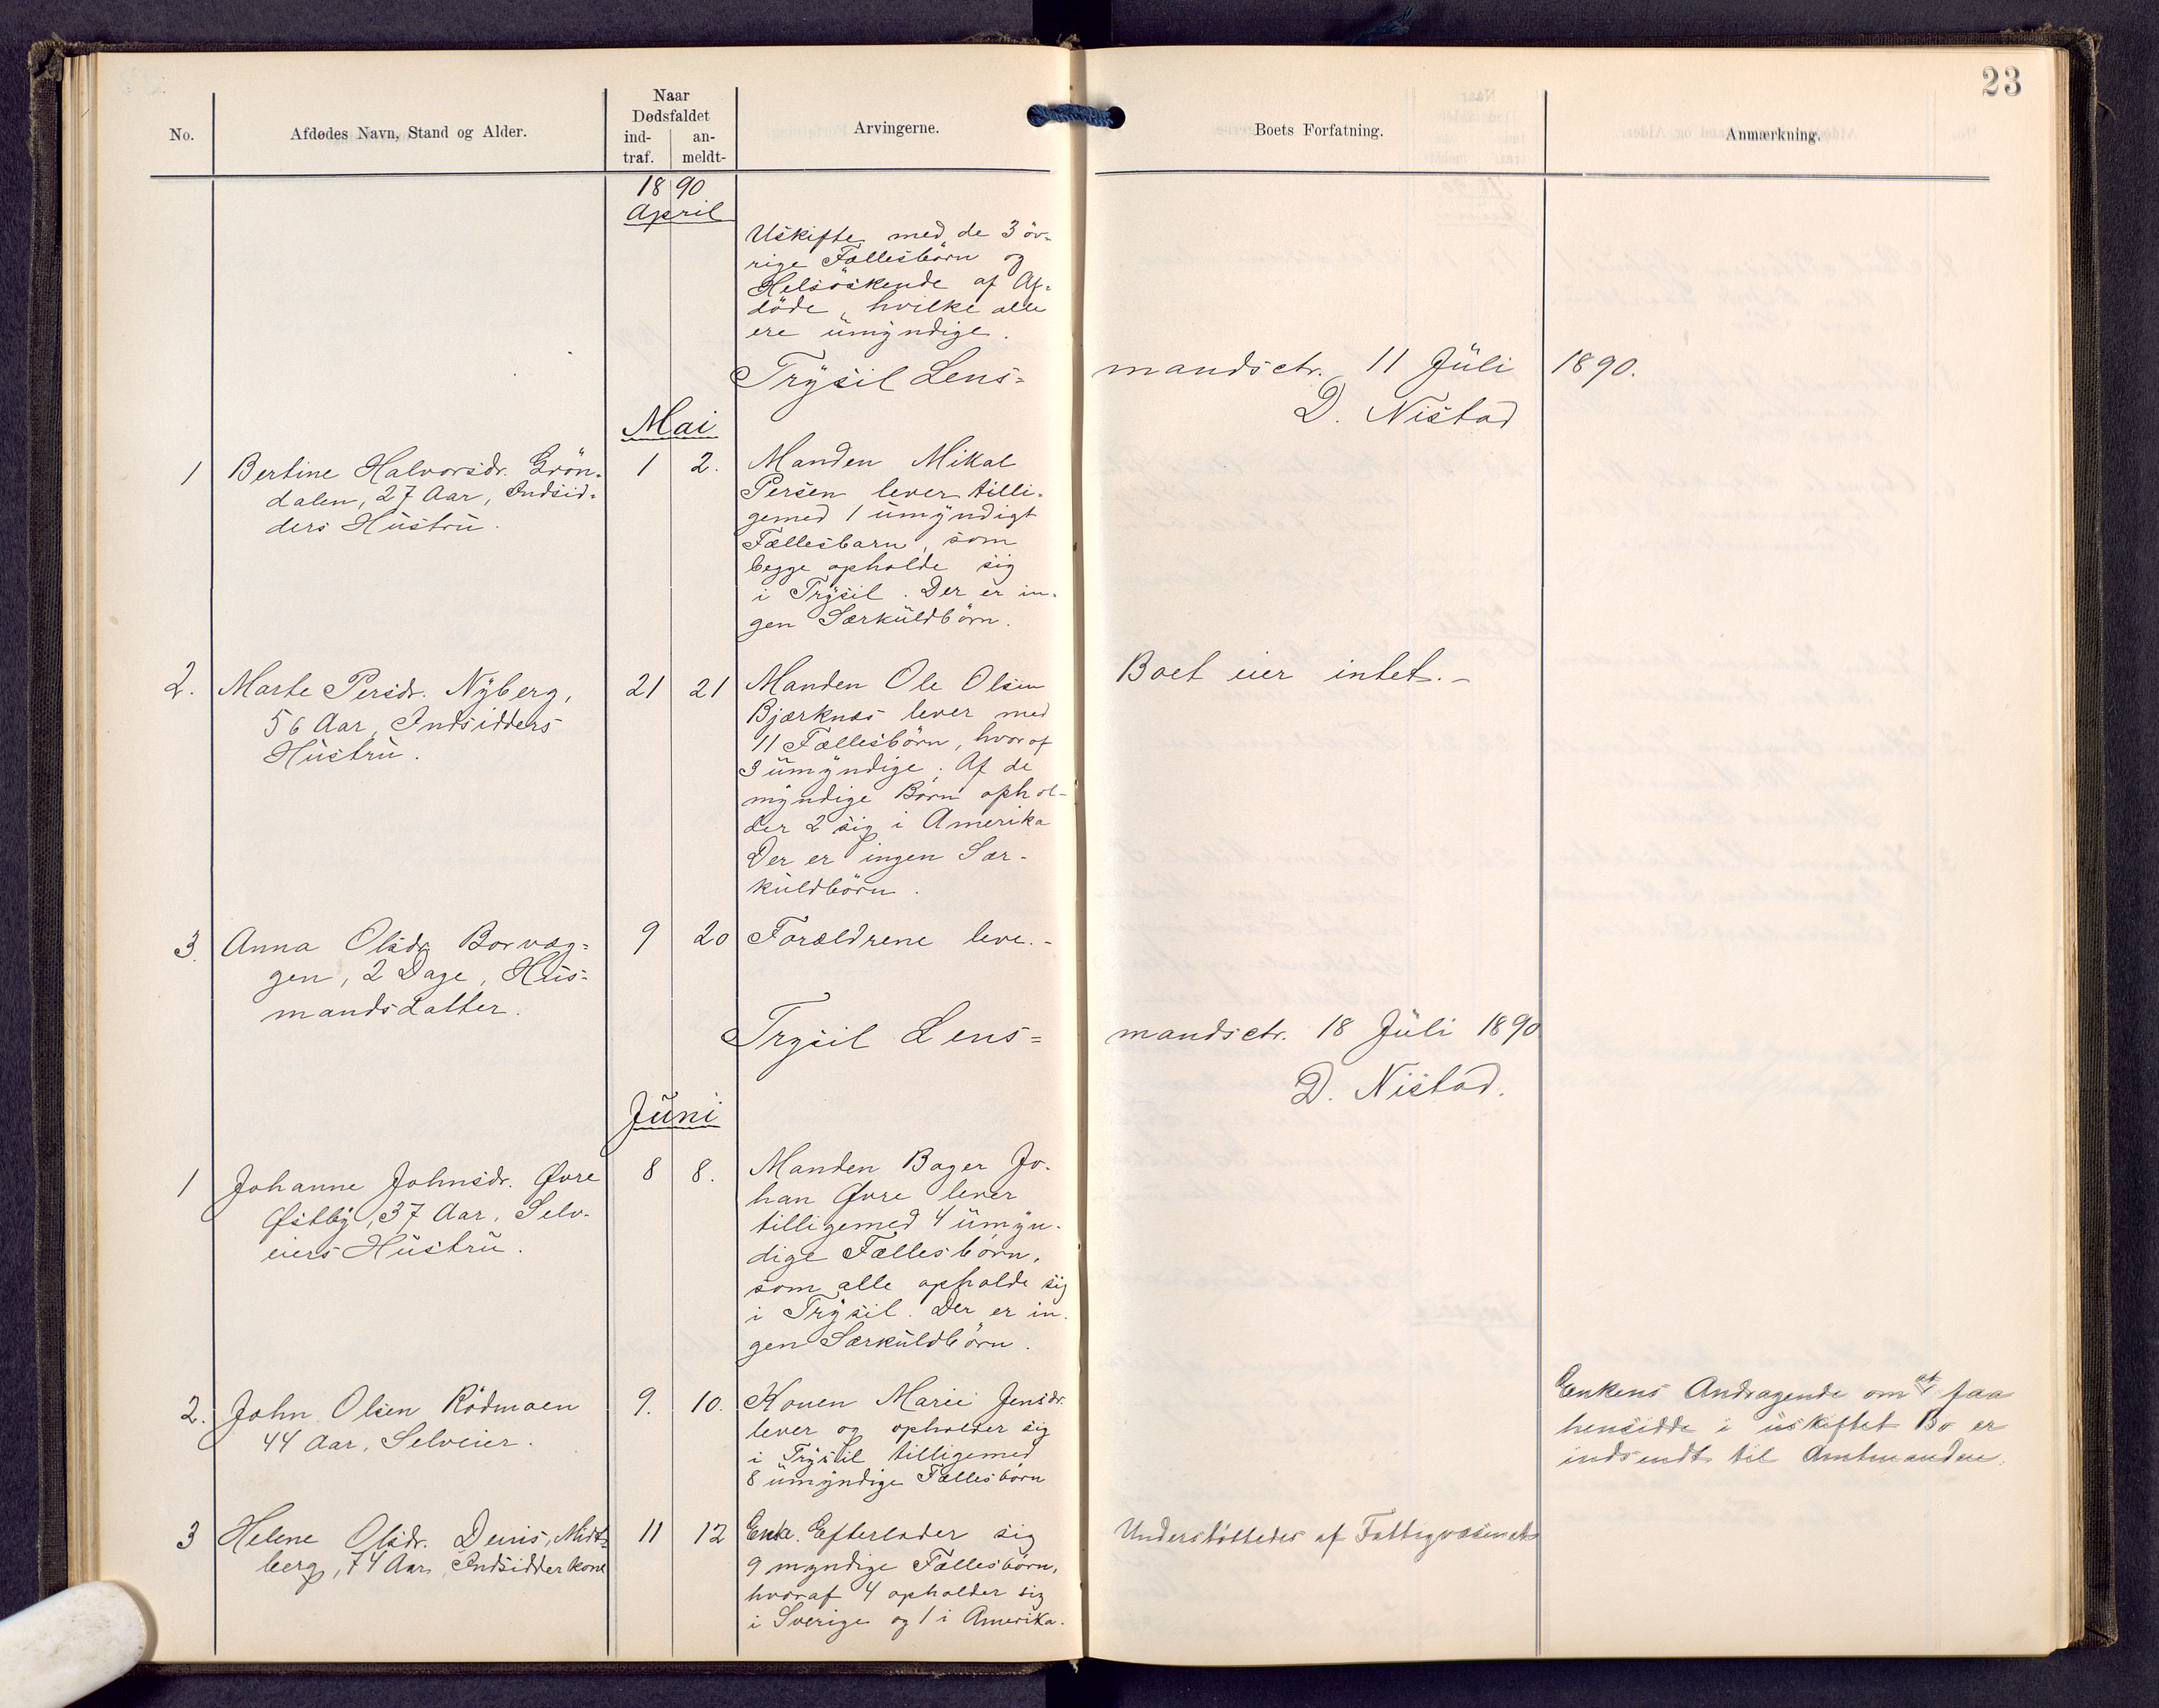 23
No.
Afdødes Navn, Stand og Alder.
Naar
Dødsfaldet
ind-
traf.
an-
meldt-
Arvingerne.
Boets Forfatning.
Anmærkning.
1890
April
Uskifte med de 3 öv-
rige Fællesbörn og
Helsöskende af Af-
döde, hvilke alle
ere umyndige.
Trysil Lens-
mandsctr. 11 Juli 1890.
D. Nistad
Mai
1 Bertine Halvorsdr. Grön-
dalen, 27 Aar, Indsid-
ders Hustru.
1 2.
Manden Mikal
Persen lever tilli-
gemed 1 umyndigt
Fællesbarn, som
begge opholde sig
i Trysil. Der er in-
gen Særkuldbörn.
2. Marte Persdr. Nyberg,
56 Aar, Indsidders
Hustru.
21 21
Manden Ole Olsen
Bjærknæs lever med
11 Fællesbörn, hvoraf
3 umyndige. Af de
myndige Börn ophol-
der 2 sig i Amerika
Der er ingen Sær-
kuldbörn.
Boet eier intet.-
3. Anna Olsdr. Borvæg-
gen, 2 Dage, Hus-
mandsdatter.
9 20
Forældrene leve.-
Trysil Lens-
mandsctr. 18 Juli 1890.
D. Nistad.
Juni
1 Johanne Johnsdr. Øvre
Østby, 37 Aar, Selv-
eiers Hustru.
8 8.
Manden Bager Jo-
han Øvre lever
tilligemed 4 umyn-
dige Fællesbörn,
som alle opholde sig
i Trysil. Der er in-
gen Særkuldbörn.
2. John Olsen Rödmoen
44 Aar, Selveier.
9. 10.
Konen Marie Jensdr.
lever og opholder sig
i Trysil tilligemed
8 umyndige Fællesbörn
Enkens Andragende om at faa
hensidde i uskiftet Bo er
indsendt til Amtmanden.
3 Helene Olsdr. Denis, Midt-
berg, 74 Aar, Indsidderkone
11 12
Enke. Efterlader sig
9 myndige Fællesbörn,
hvoraf 4 opholder sig
i Sverige og 1 i Amerika.
Understöttedes af Fattigvæsenet